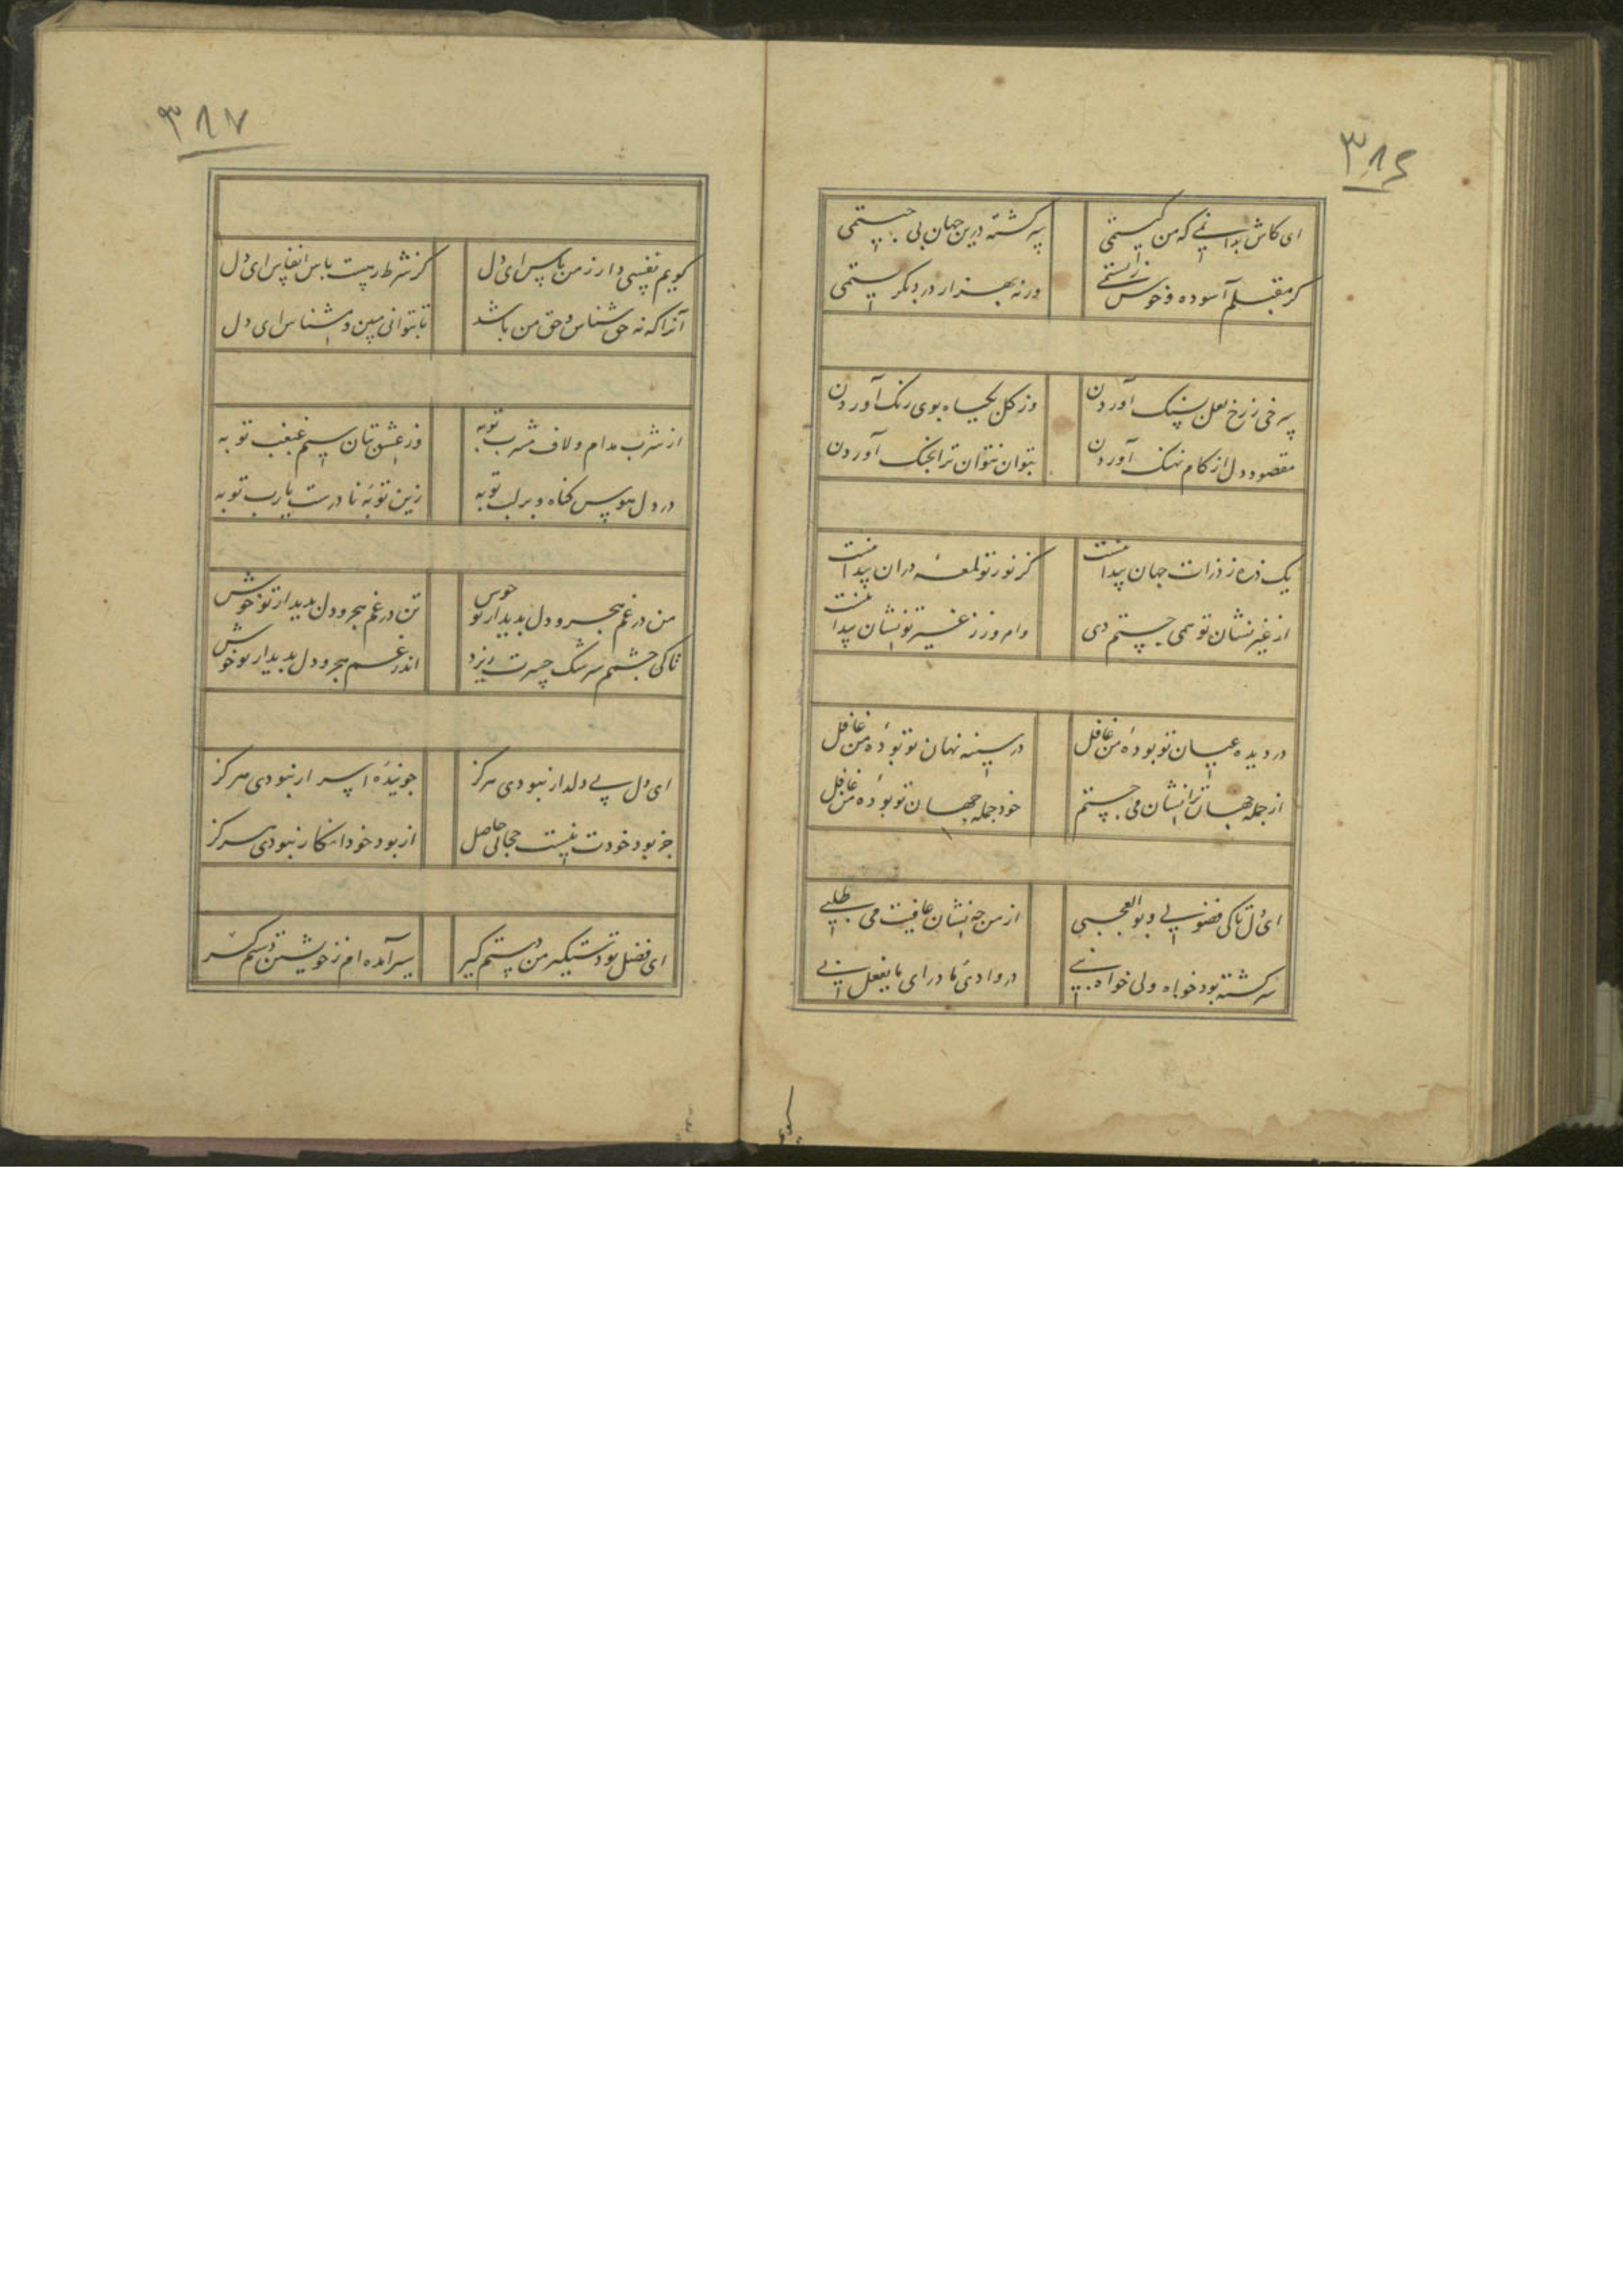 ۳۸۶
ای کاش بدانمی که من کیستمی
سرگشته درین جهان پی چیستمی
گر مقبلم آسوده و خوش زیستمی
ورنه بهزار درد بگریستمی
سرخی ز رخ لعل بسنگ آوردن
وز گل بگیاه بوی و رنگ آوردن
مقصود دل از کام نهنگ آوردن
بتوان نتوان ترا بچنگ آوردن
یک ذره ز ذرات جهان پیدا نیست
کز نور تو لمعهٔ دران پیدا نیست
از غیر نشان تو همی جستم دی
وامروز ز غیر تو نشان پیدا نیست
در دیده عیان تو بودهٔ من غافل
در سینه نهان تو بودهٔ من غافل
از جمله جهان ترا نشان می جستم
خود جمله جهان تو بودهٔ من غافل
ای دل تا کی فضولی و بوالعجبی
از من چه نشان عافیت می طلبی
سرگشته بود خواه ولی خواه نبی
در وادی ما ادری ما یفعل بی
کویم
۳۸۷
گویم نفسی دار ز من پاس ای دل
کز شرط رهیست پاس انفاس ای دل
آنرا که نه حق شناس و حق من باشد
تا بتوانی مبین و مشناس ای دل
از شرب مدام و لاف مشرب توبه
وز عشق بتان سیم غبغب توبه
در دل هوس گناه و بر لب توبه
زین توبهٔ نادرست یارب توبه
من در غم هجر و دل بدیدار تو خوش
تن در غم هجر و دل بدیدار تو خوش
تا کی چشمم سرشک حسرت ریزد
اندر غم هجر و دل بدیدار تو خوش
ای دل پی دلدار نبودی هرگز
جویندهٔ اسرار نبودی هرگز
جز بود خودت نیست حجابی حاصل
از بود خود انکار نبودی هرگز
ای فضل تو دستگیر من دستم گیر
سیر آمده ام ز خویشتن دستم گیر